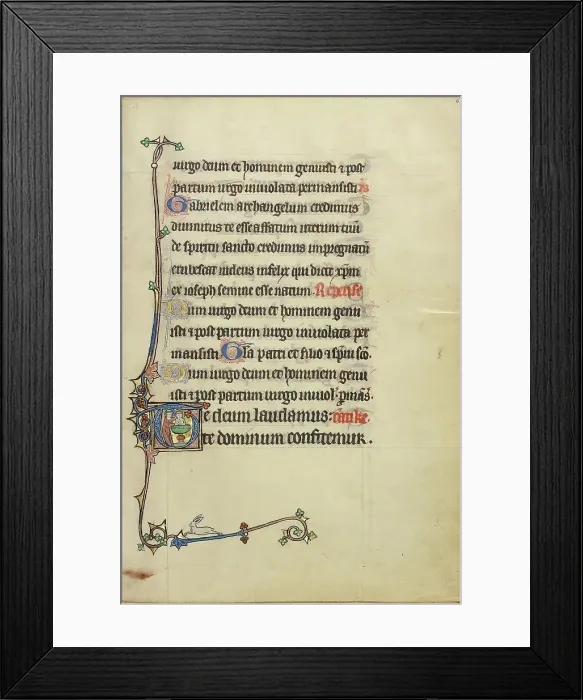 uirgo deum et hominem genuisti et post
partum uirgo inuiolata permansisti
Gabrielem archangelum credimus
diuinitus te esse affatum uterum tuū
de spiritu sancto credimus impregnatū
erubescat iudeus infelyx qui dicit xp̄m
ex ioseph semine esse natum. Repeticē
Dum uirgo deum et hominem genu
isti et post partum uirgo inuiolata per
mansisti. Gl̄a patri et filio et sp̄iu sc̄o.
Dum uirgo deum et hominem genu
isti et post partum uirgo inuiol' p̄māis.
Te deum laudamus: cātike.
te dominum confitemur.